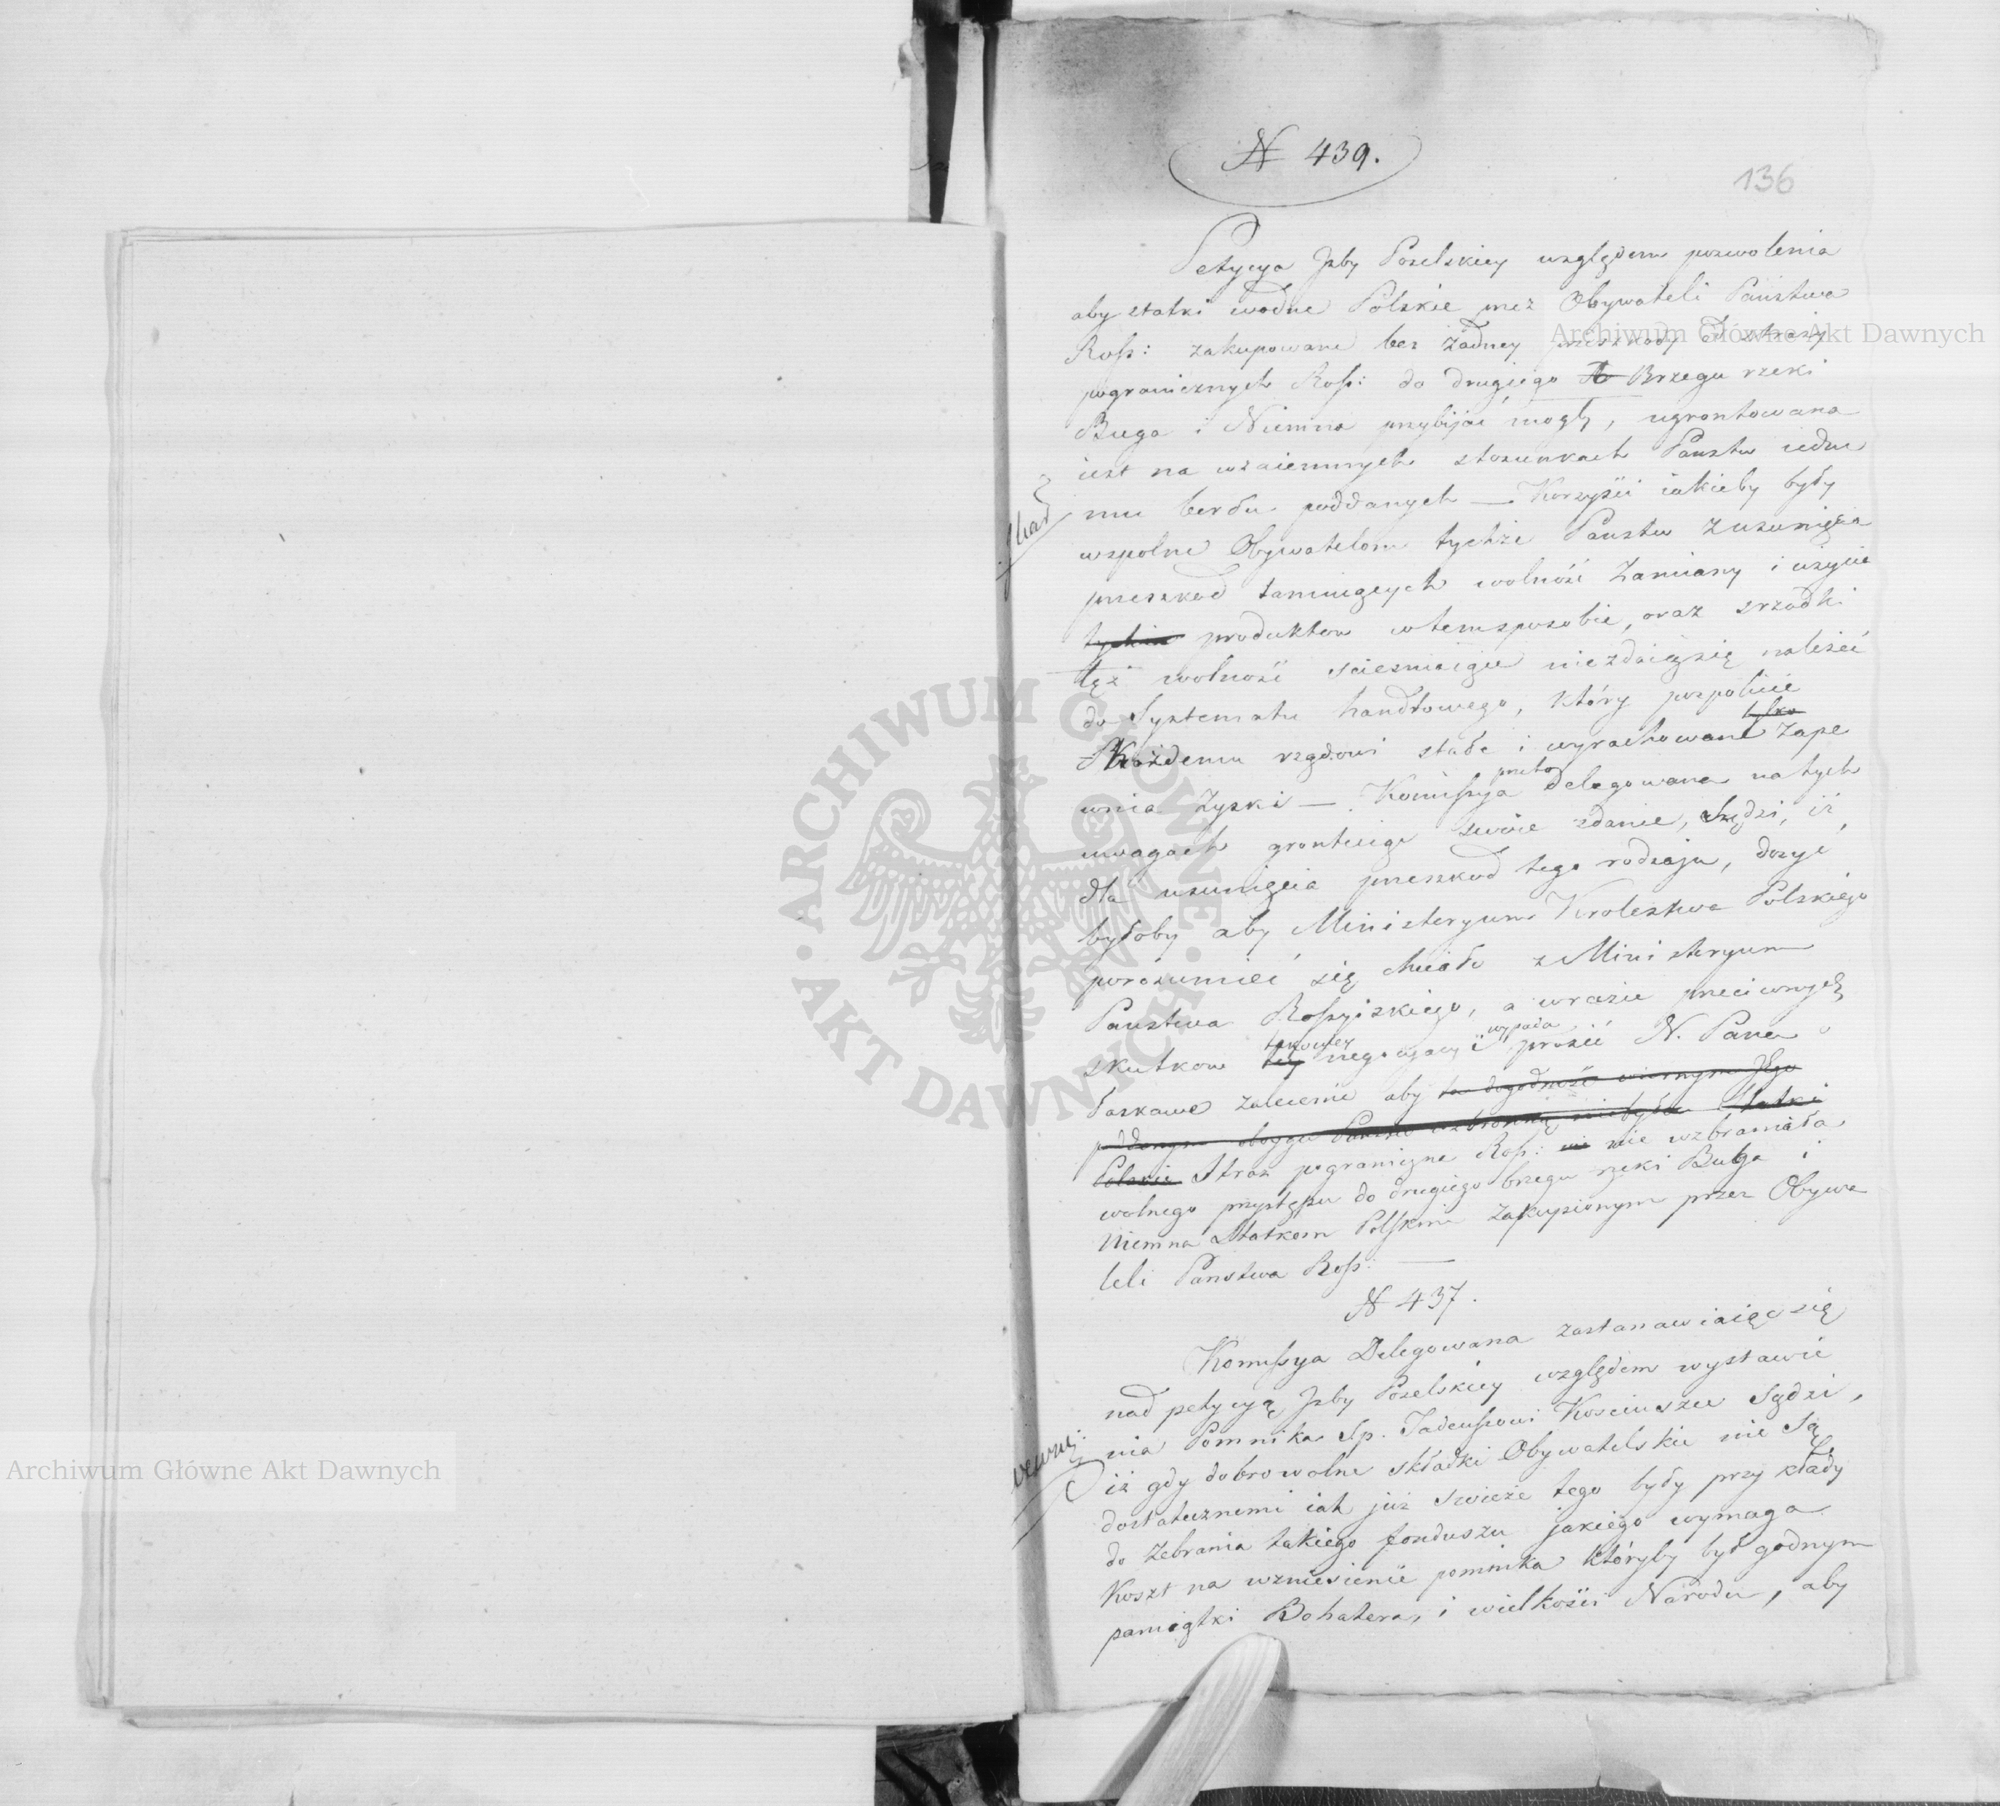 N 439.
136
Petycya Jzby Poselskiey względem pozwolenia
aby statki wodne Polskie przez Obywateli Państwa
Ross: zakupowane bez żadney przeszkody od straży
pogranicznych Ross: do drugiego Brzegu rzeki
Buga i Niemna przybijać mogły, ugrontowana
iest na wzaiemnych stosunkach Panstw iedne
mu berłu poddanych — Korzyści iakieby były
wspolne Obywatelom tychże Panstw z usunięcia
przeszkod tamuiących wolność Zamiany i użycie
tychże produktow w tem sposobie, oraz srzodki
tęż wolność scieśniaiące niezdaią się należeć
do Systematu handlowego, który pospolicie
tylko
Każdemu rządowi stałe i wyrachowane zape
wnia Zyski — Komissya przeto Delegowana na tych
uwagach grontuiąc swoie zdanie, Sądzi, iż
dla usunięcia przeszkod tego rodzaju, dosyć
byłoby aby Ministeryum Krolestwa Polskiego
porozumieć się chciało z Ministeryum
Panstwa Rossyiskiego, a w razie przeciwnych
skutkow tey takowey negocyacyi wypada prosić N. Pana o
łaskawe zalecenie aby ta dogodność wiernym Jego
poddanym oboyga Panstw wzbronioną niebyła Statki
Polskie Straż pograniczna Ross: nie wzbraniała
wolnego przystępu do drugiego brzegu rzeki Buga i
Niemna Statkom Polskim zakupionym przez Obywa
teli Panstwa Ross: —
N 437.
Komissya Delegowana zastanawiaiąc się
nad petycyą Jzby Poselskiey względem wystawie
nia Pomnika Sp. Tadeuszowi Kosciuszce Sądzi,
iż gdy dobrowolne składki Obywatelskie nie są
dostatecznemi iak już swieże tego były przykłady
do zebrania takiego funduszu jakiego wymaga
Koszt na wzniesienie pomnika któryby był godnym
pamiątki Bohatera, i wielkości Narodu, aby
Archiwum Główne Akt Dawnych
Archiwum Główne Akt Dawnych
ARCHIWUM GŁÓWNE · AKT DAWNYCH ·